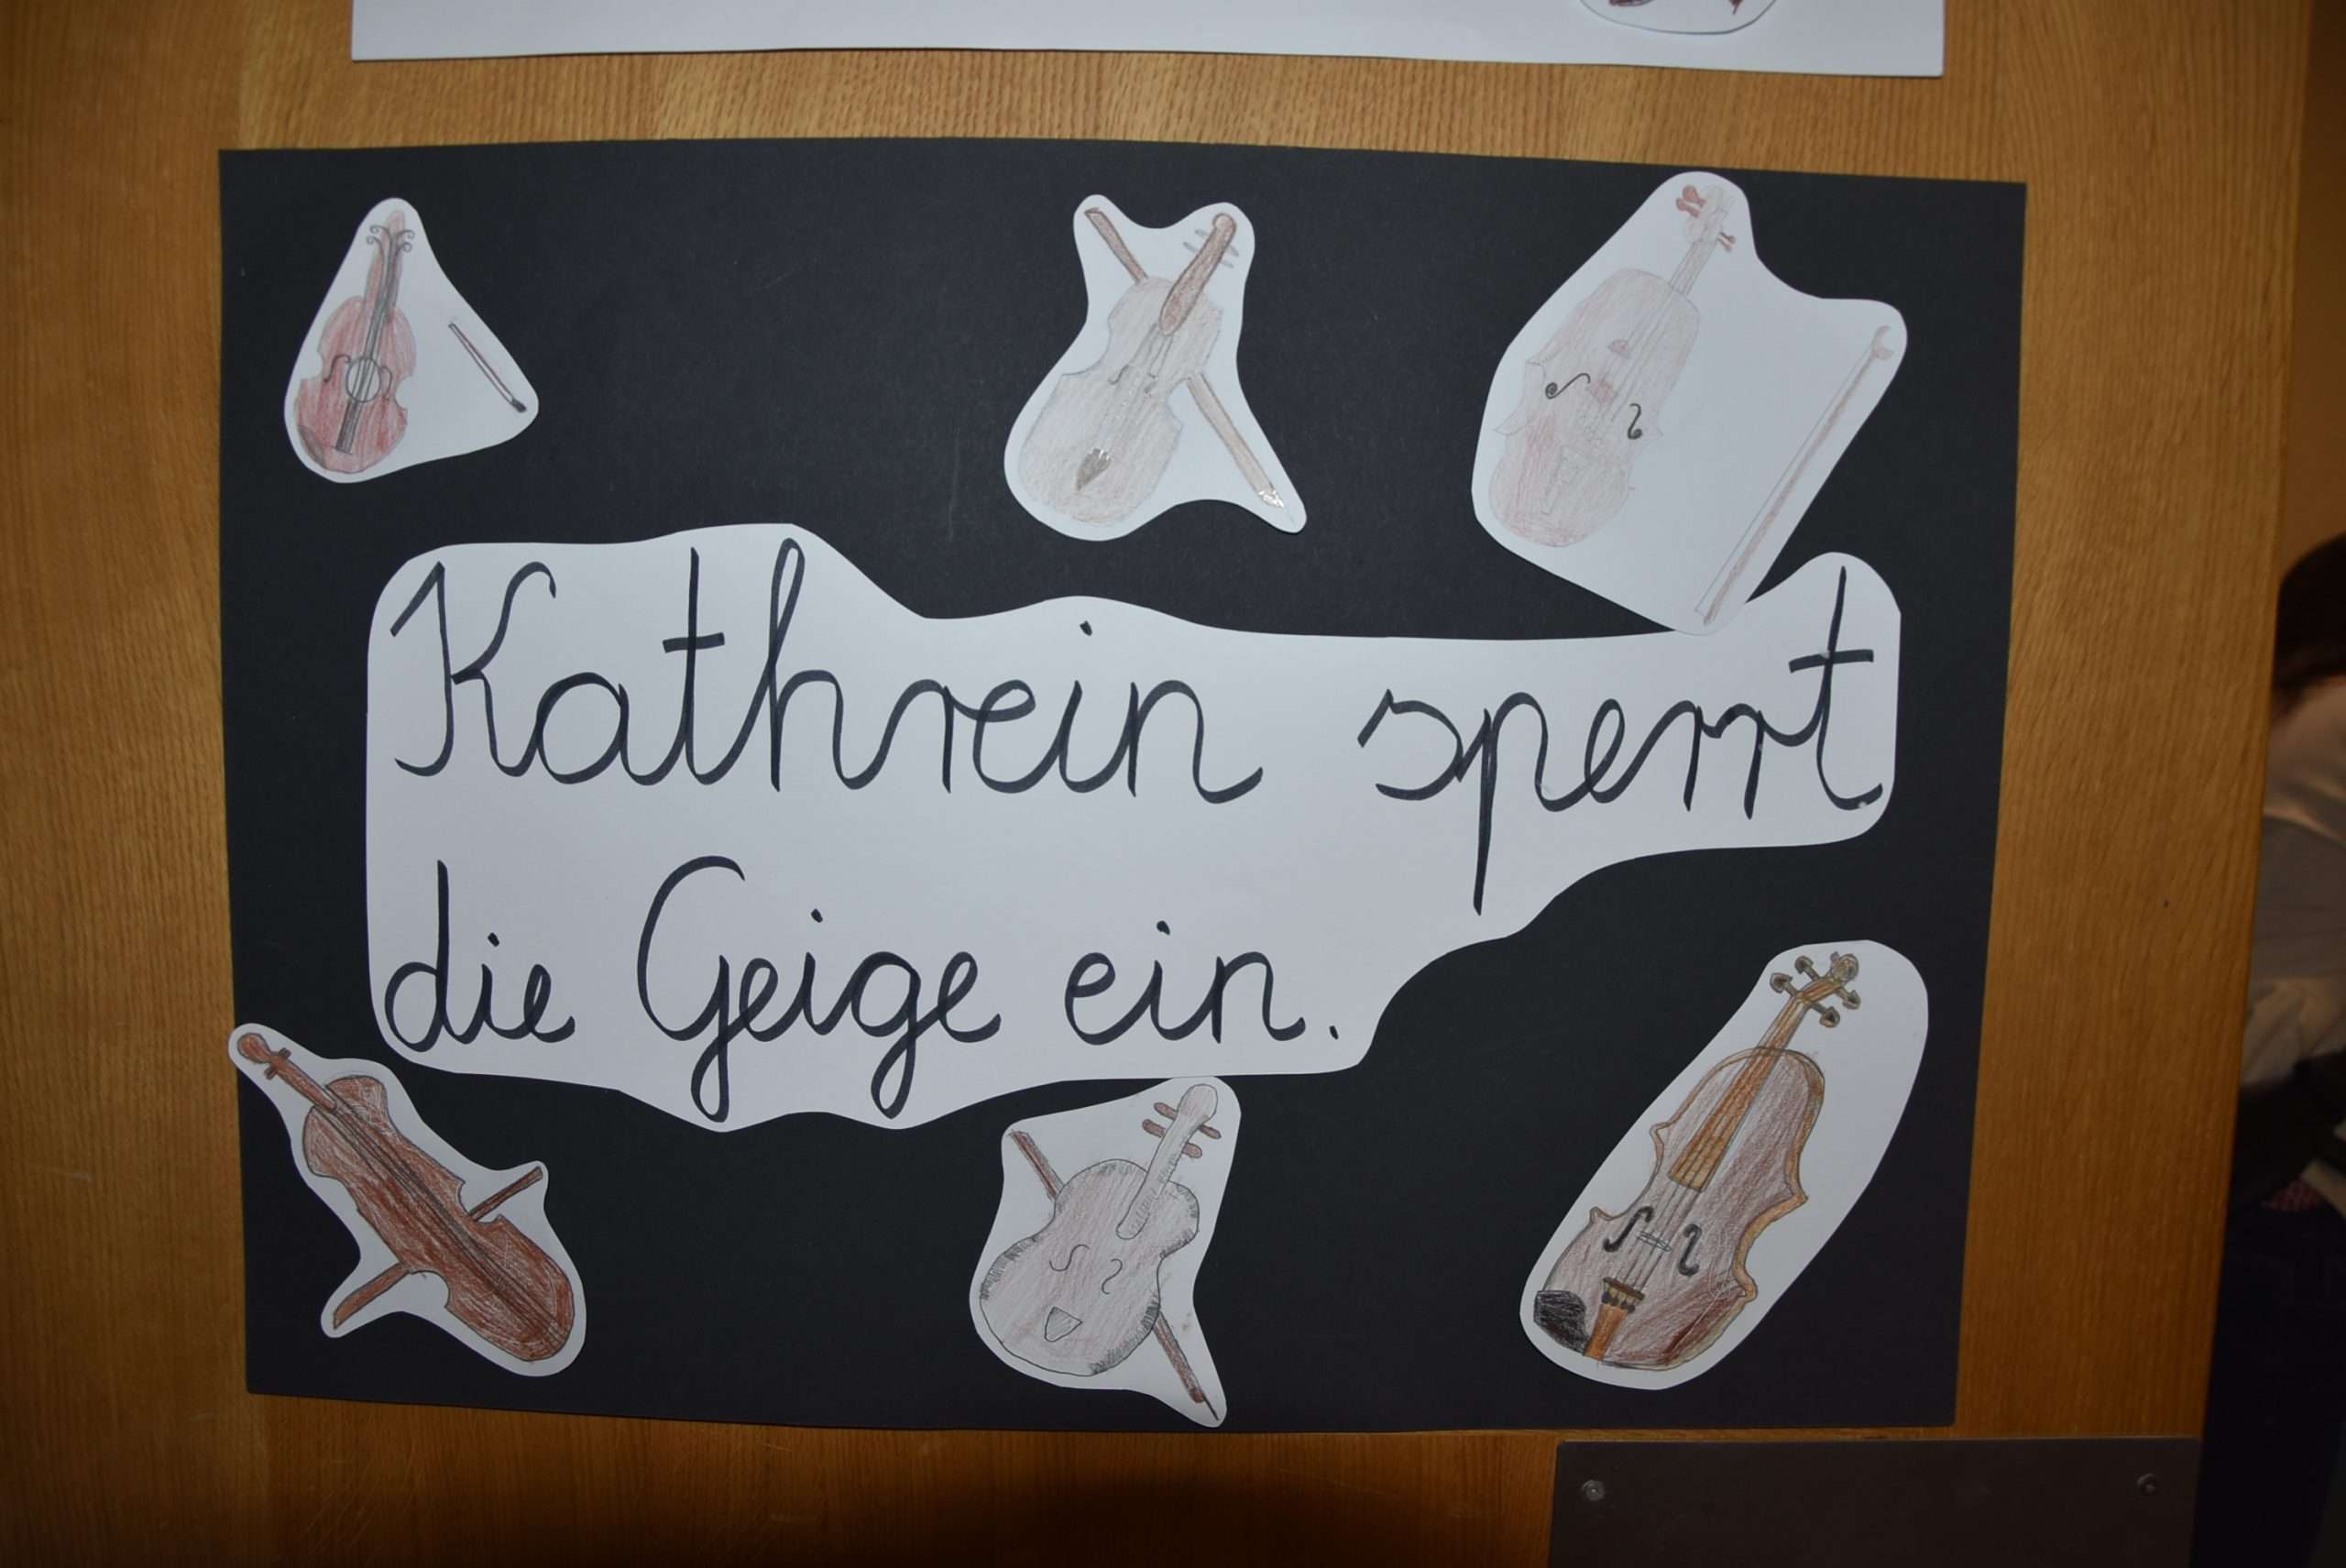 Kathrein sperrt
die Geige ein.